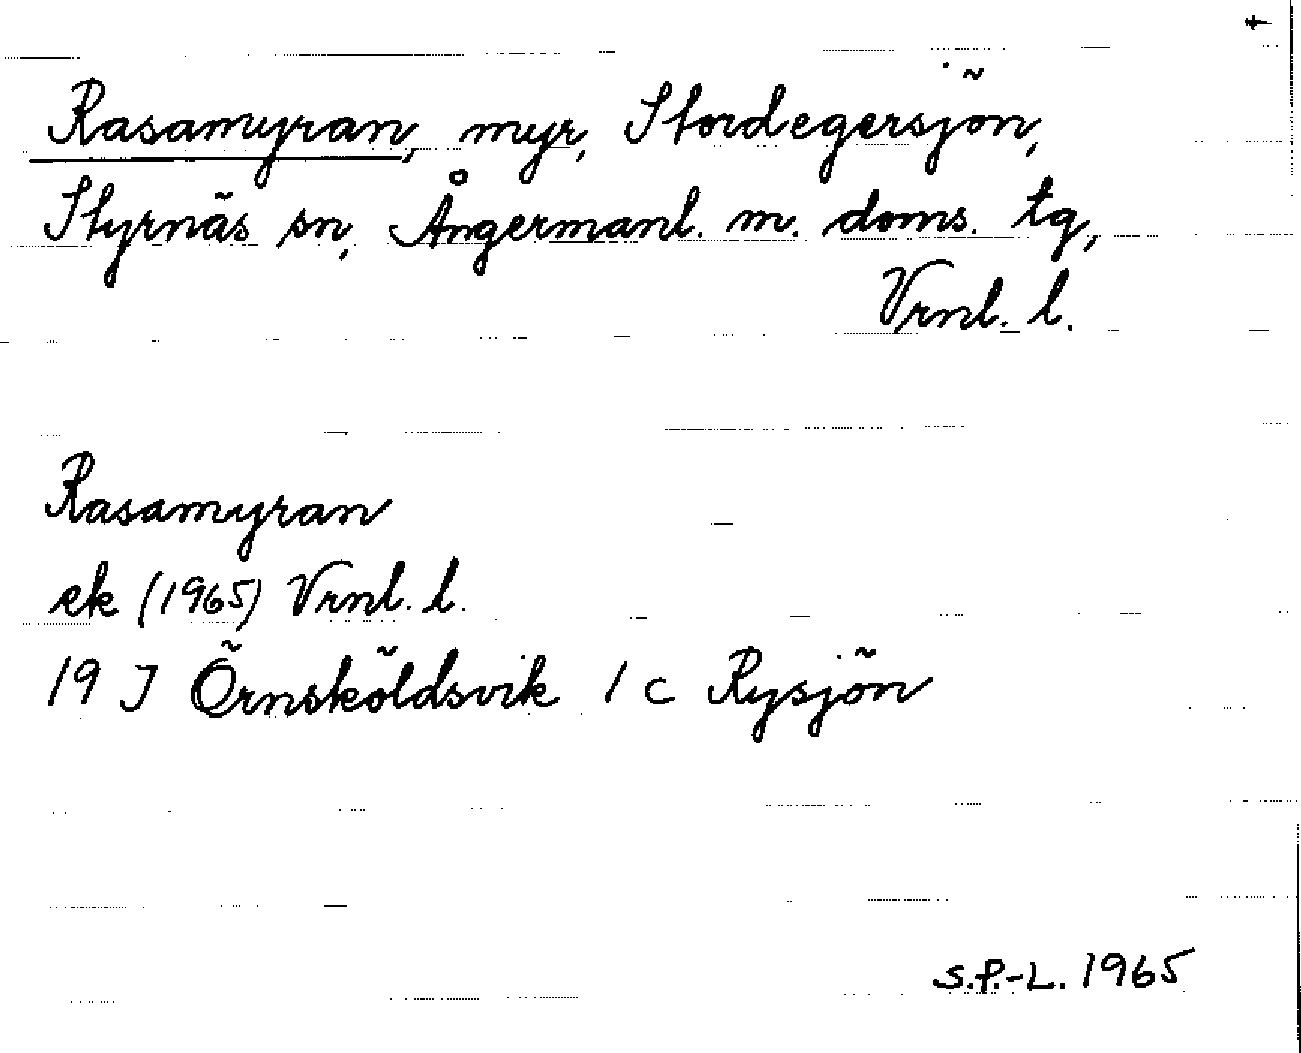 Rasamyran, myr, Stordegersjön,
Styrnäs sn, Ångermanl. m. doms. tg,
Vrnl. l.
Rasamyran
ek (1965) Vrnl. l.
19 J Örnsköldsvik 1 c Rysjön
S.P.-L. 1965